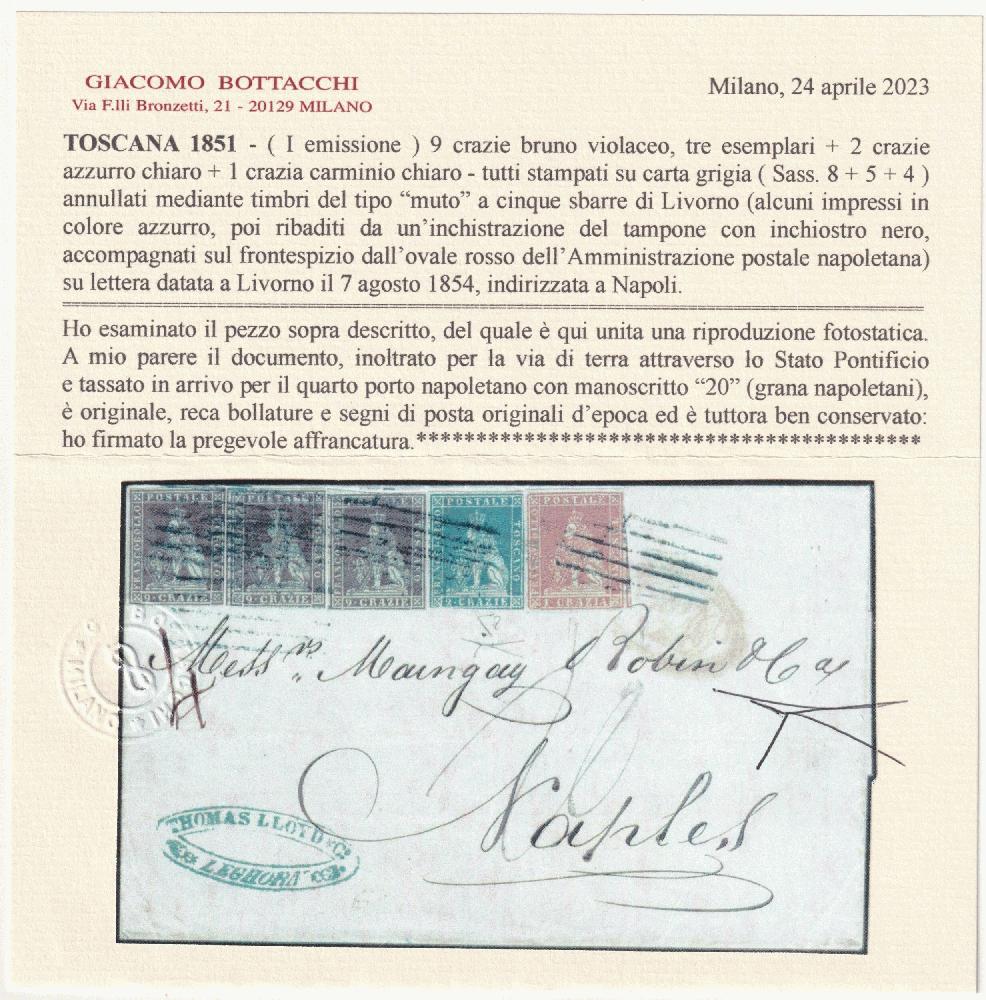 GIACOMO BOTTACCHI
Via F.lli Bronzetti, 21 - 20129 MILANO
Milano, 24 aprile 2023
TOSCANA 1851 - ( I emissione ) 9 crazie bruno violaceo, tre esemplari + 2 crazie
azzurro chiaro + 1 crazia carminio chiaro - tutti stampati su carta grigia ( Sass. 8 + 5 + 4 )
annullati mediante timbri del tipo “muto” a cinque sbarre di Livorno (alcuni impressi in
colore azzurro, poi ribaditi da un’inchistrazione del tampone con inchiostro nero,
accompagnati sul frontespizio dall’ovale rosso dell’Amministrazione postale napoletana)
su lettera datata a Livorno il 7 agosto 1854, indirizzata a Napoli.
Ho esaminato il pezzo sopra descritto, del quale è qui unita una riproduzione fotostatica.
A mio parere il documento, inoltrato per la via di terra attraverso lo Stato Pontificio
e tassato in arrivo per il quarto porto napoletano con manoscritto “20” (grana napoletani),
è originale, reca bollature e segni di posta originali d’epoca ed è tuttora ben conservato:
ho firmato la pregevole affrancatura.******************************************
POSTALE POSTALE POSTALE POSTALE POSTALE
FRANCOBOLLO TOSCANO
9 CRAZIE 9 CRAZIE 9 CRAZIE 2 CRAZIE 1 CRAZIA
Mess.rs Maingay Robin & Co
Naples
THOMAS LLOYD & Co
LEGHORN
MILANO